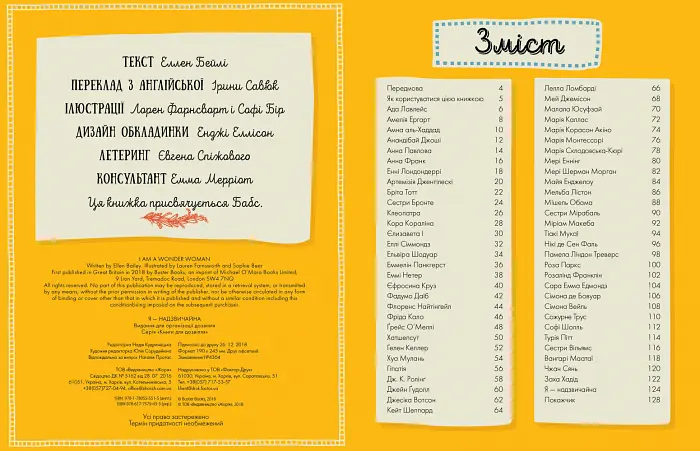 ТЕКСТ Еллен Бейлі
ПЕРЕКЛАД З АНГЛІЙСЬКОЇ Ірини Саввюк
ІЛЮСТРАЦІЇ Лорен Фарнсворт і Софі Бір
ДИЗАЙН ОБКЛАДИНКИ Енджі Еллісон
ЛЕТЕРИНГ Євгена Спіжового
КОНСУЛЬТАНТ Емма Мерріот
Ця книжка присвячується Бабс.
I AM A WONDER WOMAN
Written by Ellen Bailey. Illustrated by Lauren Farnsworth and Sophie Beer
First published in Great Britain in 2018 by Buster Books, an imprint of Michael O'Mara Books Limited,
9 Lion Yard, Tremadoc Road, London SW4 7NQ
All rights reserved. No part of this publication may be reproduced, stored in a retrieval system, or transmitted
by any means, without the prior permission in writing of the publisher, nor be otherwise circulated in any form
of binding or cover other than that in which it is published and without a similar condition including this
condition being imposed on the subsequent purchaser.
Я — НАДЗВИЧАЙНА
Видання для організації дозвілля
Серія «Книги для дозвілля»
Редакторка Надія Кудринецька
Художня редакторка Юлія Сардейкіна
Підписано до друку 26. 12. 2018
Формат 190 x 245 мм. Друк офсетний
Замовлення №4364
ТОВ «Видавництво «Жорж»
Свідоцтво ДК № 5162 від 28. 07. 2016
Надруковано у ТОВ «Фактор-Друк»
61030, Україна, м. Харків, вул. Саратовська, 51
Тел. +38(057) 717-53-57
© Buster Books, 2018
© ТОВ «Видавництво «Жорж», 2018
Усі права застережено
Термін придатності необмежений
Зміст
Передмова 4
Як користуватися цією книжкою 5
Ада Лавлейс 6
Амелія Ергарт 8
Амна аль-Хаддад 10
Анандібай Джоші 12
Анна Павлова 14
Анна Франк 16
Енні Лондондеррі 18
Артемізія Джентілескі 20
Бріта Тотт 22
Сестри Бронте 24
Клеопатра 26
Кора Кораліна 28
Єлизавета І 30
Еллі Сіммондз 32
Ельвіра Шодуар 34
Еммелін Панкгерст 36
Еммі Нетер 38
Єфросинка Круз 40
Фадумо Даїб 42
Флоренс Найтінгейл 44
Фріда Кало 46
Ґрейс О'Меллі 48
Хатшепсут 50
Гелен Келлер 52
Хуа Мулань 54
Гіпатія 56
Дж. К. Ролінг 58
Джейн Ґудолл 60
Джесіка Вотсон 62
Кейт Шеппард 64
Лелла Ломбарді 66
Мей Джемісон 68
Малала Юсуфзай 70
Марія Каллас 72
Марія Корасон Акіно 74
Марія Монтессорі 76
Марія Склодовська-Кюрі 78
Мері Еннінг 80
Мері Шерман Морган 82
Майя Енджелоу 84
Мельба Лістон 86
Мішель Обама 88
Сестри Мірабаль 90
Міріам Макеба 92
Тіакі Мукої 94
Нікі де Сен Фаль 96
Памела Ліндон Треверс 98
Роза Паркс 100
Розалінд Франклін 102
Сара Емма Едмондз 104
Сімона де Бовуар 106
Сімона Вейль 108
Сожурне Трус 110
Софі Шолль 112
Турія Пітт 114
Сестри Вільямс 116
Вангарі Маатаі 118
Чжан Сянь 120
Заха Хадід 122
Я — надзвичайна 124
Покажчик 128